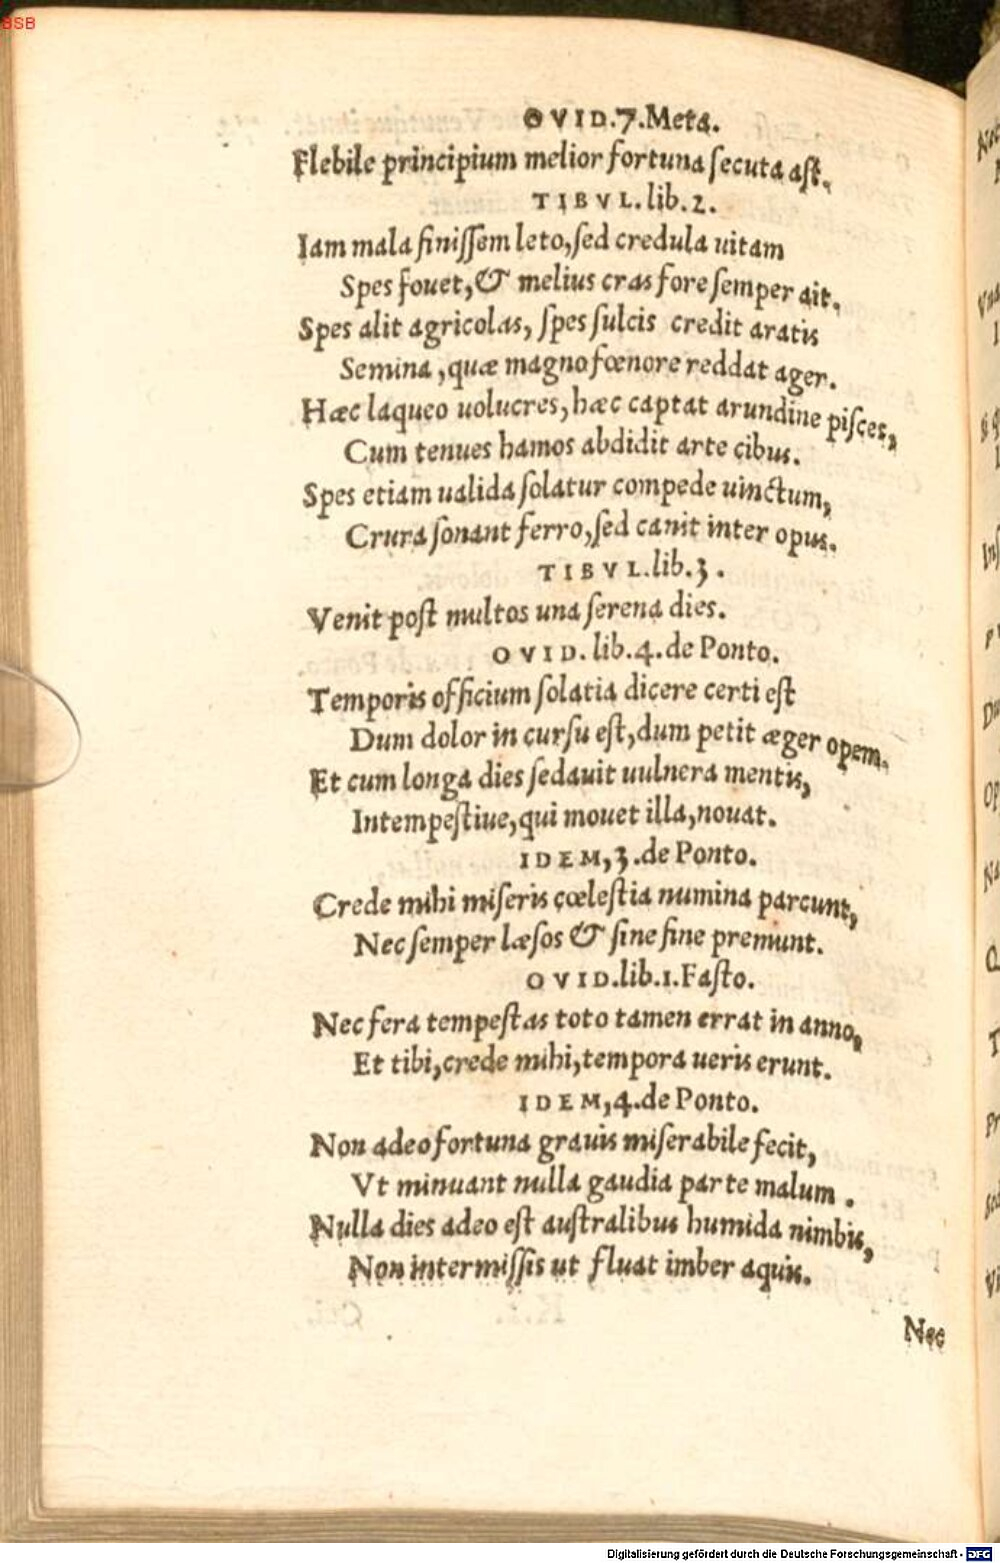 BSB
OVID.7.Meta.
Flebile principium melior fortuna ſecuta aſt.
TIBVL.lib.2.
Iam mala finiſſem leto,ſed credula uitam
Spes fouet,& melius cras fore ſemper ait.
Spes alit agricolas, ſpes ſulcis credit aratis
Semina,quæ magno fœnore reddat ager.
Hæc laqueo uolucres,hæc captat arundine piſces,
Cum tenues hamos abdidit arte cibus.
Spes etiam ualida ſolatur compede uinctum,
Crura ſonant ferro,ſed canit inter opus.
TIBVL.lib.3.
Venit poſt multos una ſerena dies.
OVID.lib.4.de Ponto.
Temporis officium ſolatia dicere certi eſt
Dum dolor in curſu eſt,dum petit æger opem.
Et cum longa dies ſedauit uulnera mentis,
Intempeſtiue,qui mouet illa,nouat.
IDEM,3.de Ponto.
Crede mihi miſeris cœleſtia numina parcunt,
Nec ſemper læſos & ſine fine premunt.
OVID.lib.1.Faſto.
Nec fera tempeſtas toto tamen errat in anno,
Et tibi,crede mihi,tempora ueris erunt.
IDEM,4.de Ponto.
Non adeo fortuna grauis miſerabile fecit,
Vt minuant nulla gaudia parte malum.
Nulla dies adeo eſt auſtralibus humida nimbis,
Non intermiſſis ut fluat imber aquis.
Nec
Digitalisierung gefördert durch die Deutsche Forschungsgemeinschaft - DFG